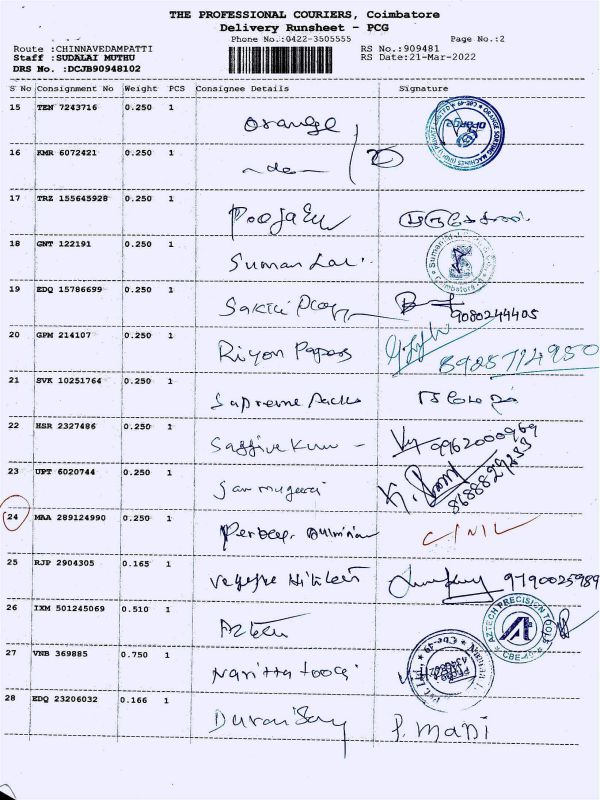 THE PROFESSIONAL COURIERS, Coimbatore
Delivery Runsheet - PCG
Phone No.:0422-3505555 Page No.:2
Route :CHINNAVEDAMPATTI RS No.:909481
Staff :SUDALAI MUTHU RS Date:21-Mar-2022
DRS No. :DCJB90948102
S No Consignment No Weight PCS Consignee Details Signature
15 TEN 7243716 0.250 1 Orange
16 KMR 6072421 0.250 1 -do-
17 TRZ 155645928 0.250 1
18 GNT 122191 0.250 1 Suman Lal
19 EDQ 15786699 0.250 1 Sakthi 9080244405
20 GPM 214107 0.250 1 Riyon Papers 8925714950
21 SVK 10251764 0.250 1 Supreme Packs
22 HSR 2327486 0.250 1 9962000969
23 UPT 6020744 0.250 1 8688829283
24 MAA 289124990 0.250 1
25 RJP 2904305 0.165 1 9790025989
26 IXM 501245069 0.510 1 Aztech AZTECH PRECISION TOOLS
27 VNB 369885 0.750 1
28 EDQ 23206032 0.166 1 Duraisamy P. Mani